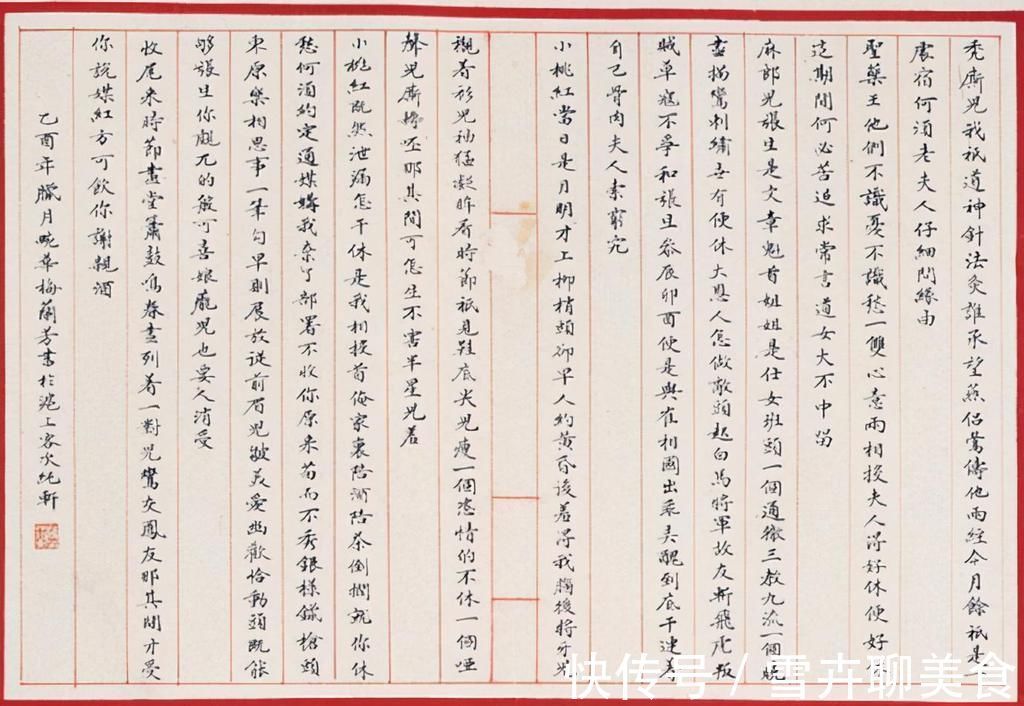 禿廝兒我祇道神針法灸誰承望燕侶鶯儔他兩經今月餘祇是一
處宿何須老夫人仔細問緣由
聖藥王他們不識憂不識愁一雙心意兩相投夫人得好休便好休
這期間何必苦追求常言道女大不中留
麻郎兒張生是文章魁首姐姐是仕女班頭一個通徹三教九流一個曉
盡描鸞刺繡世有便休大恩人怎做敵頭起白馬將軍故友斬飛虎叛
賊草寇不爭和張生參辰卯酉便是與崔相國出乖弄醜到底干連着
自己骨肉夫人索窮究
小桃紅當日是月明才上柳梢頭卻早人約黃昏後羞得我腦後將牙兒
襯着衫兒袖猛凝眸看時節祇見鞋底尖兒瘦一個恣情的不休一個啞
聲兒廝耨呸那其間可怎生不害半星兒羞
小桃紅既然泄漏怎干休是我相投首俺家裏陪酒陪茶倒撋就你休
愁何須約定通媒媾我棄了部署不收你原來苗而不秀銀樣鑞槍頭
東原樂相思事一筆勾早則展放從前眉兒皺美愛幽歡恰動頭既能
夠張生你覷兀的般可喜娘龐兒也要人消受
收尾來時節畫堂簫鼓鳴春晝列着一對兒鸞交鳳友那其間才受
你說媒紅方可飲你謝親酒
乙酉年臘月畹華梅蘭芳書於滬上客次純軒
快传号/雪卉聊美食